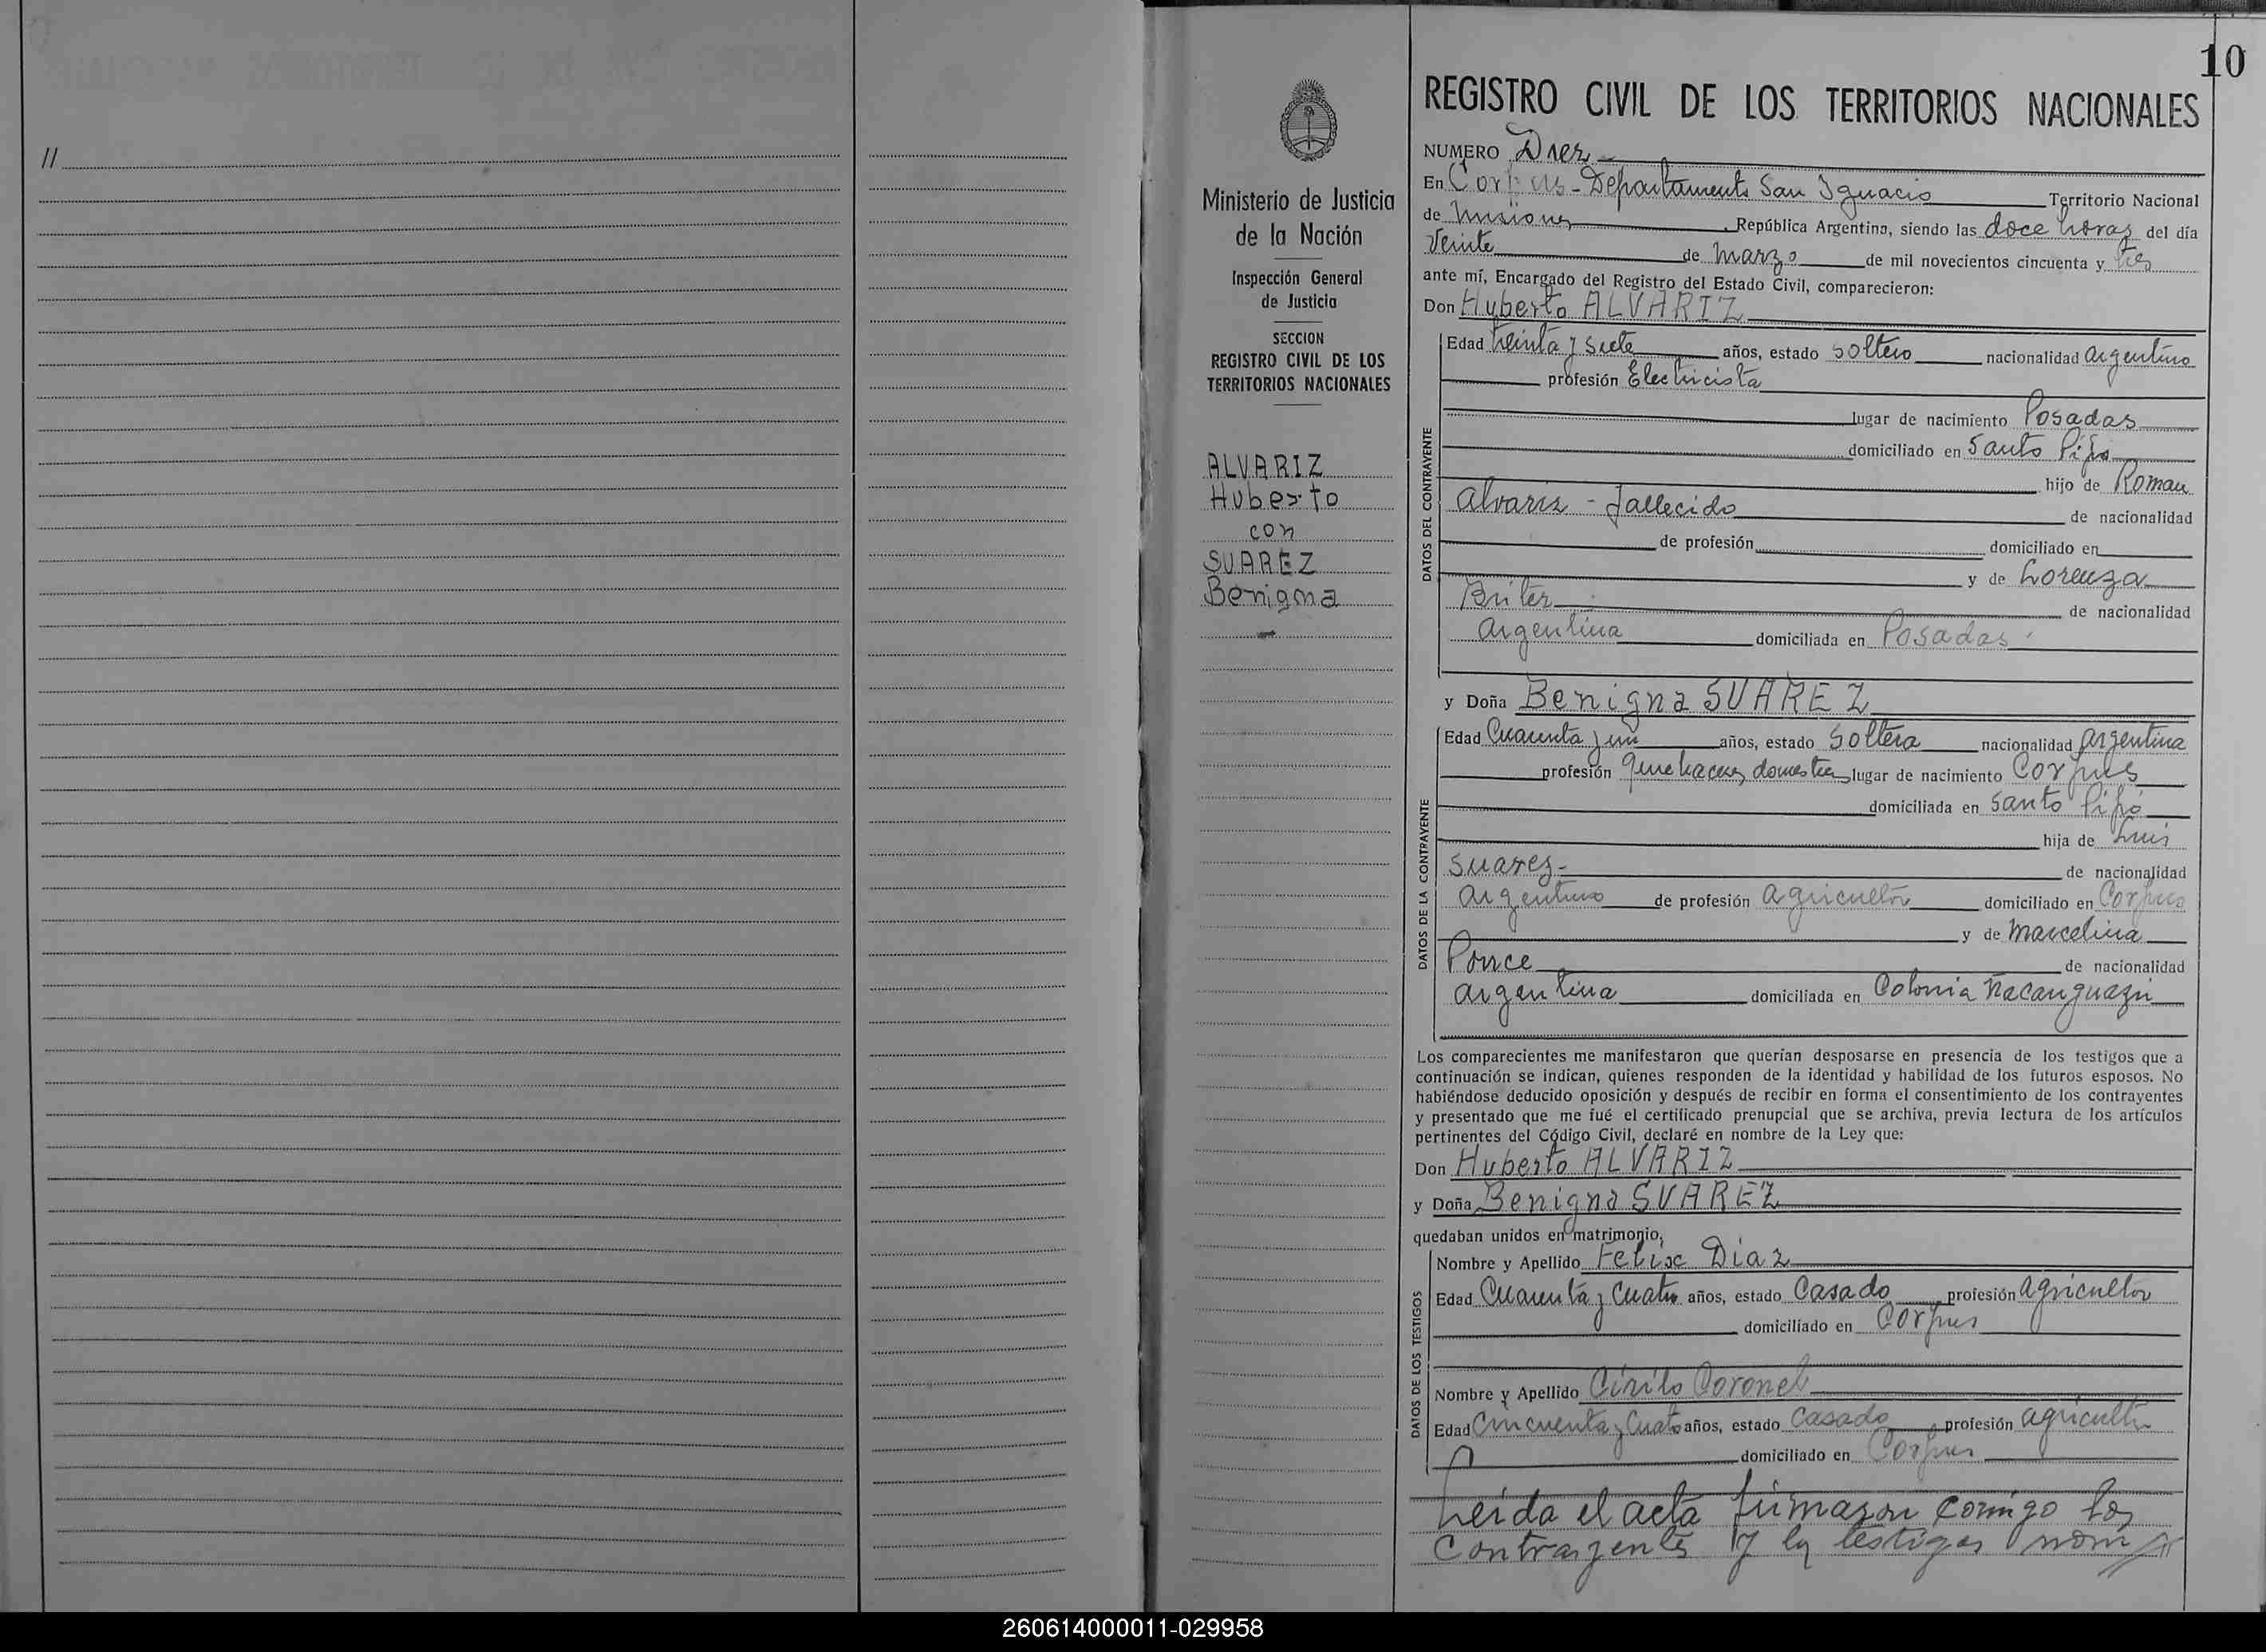 //
10
Ministerio de Justicia
de la Nación
Inspección General
de Justicia
SECCION
REGISTRO CIVIL DE LOS
TERRITORIOS NACIONALES
ALVARIZ
Huberto
con
SUAREZ
Benigna
REGISTRO CIVIL DE LOS TERRITORIOS NACIONALES
NUMERO Diez
En Corpus - Departamento San Ignacio Territorio Nacional
de Misiones, República Argentina, siendo las doce horas del día
Veinte de Marzo de mil novecientos cincuenta y tres
ante mí, Encargado del Registro del Estado Civil, comparecieron:
Don Huberto ALVARIZ
DATOS DEL CONTRAYENTE
Edad treinta y siete años, estado soltero nacionalidad argentino
profesión Electricista
lugar de nacimiento Posadas
domiciliado en Santo Pipo
hijo de Roman
Alvariz - fallecido de nacionalidad
de profesión domiciliado en
y de Lorenza
de nacionalidad
argentina domiciliada en Posadas
y Doña Benigna SUAREZ
DATOS DE LA CONTRAYENTE
Edad Cuarenta y un años, estado Soltera nacionalidad argentina
profesión quehaceres domesticos lugar de nacimiento Corpus
domiciliada en Santo Pipó
hija de Luis
Suarez - de nacionalidad
argentino de profesión agricultor domiciliado en Corpus
y de Marcelina
Ponce de nacionalidad
argentina domiciliada en Colonia Ñacanguazu
Los comparecientes me manifestaron que querían desposarse en presencia de los testigos que a
continuación se indican, quienes responden de la identidad y habilidad de los futuros esposos. No
habiéndose deducido oposición y después de recibir en forma el consentimiento de los contrayentes
y presentado que me fué el certificado prenupcial que se archiva, previa lectura de los artículos
pertinentes del Código Civil, declaré en nombre de la Ley que:
Don Huberto ALVARIZ
y Doña Benigna SUAREZ
quedaban unidos en matrimonio,
DATOS DE LOS TESTIGOS
Nombre y Apellido Felix Diaz
Edad Cuarenta y cuatro años, estado Casado profesión agricultor
domiciliado en Corpus
Nombre y Apellido Cirilo Coronel
Edad Cincuenta y cuatro años, estado casado profesión agricultor
domiciliado en Corpus
Leida el acta firmaron comigo los
contrayentes y los testigos nom //
260614000011-029958